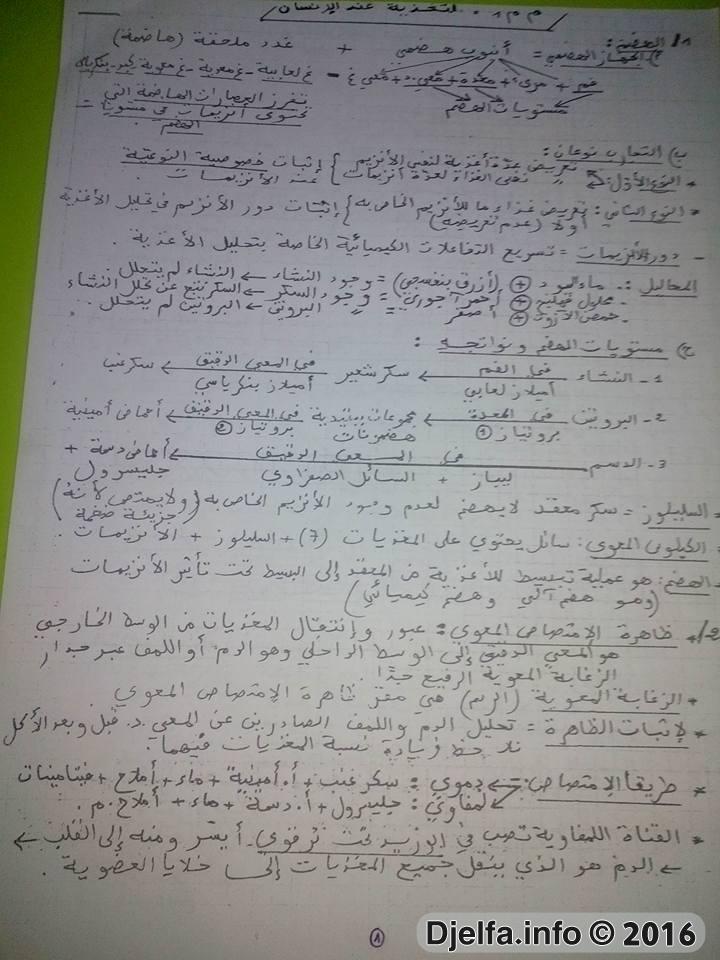 م م 1. التغذية عند الإنسان
1/ الهضم:
أ) الجهاز الهضمي = أنبوب هضمي + غدد ملحقة (هاضمة)
فم + مريء + معدة + معي د + معي غ - غ لعابية - غ معدية - غ معوية - كبد - بنكرياس
مستويات الهضم
تفرز العصارات الهاضمة التي
تحتوي أنزيمات في مستويات
الهضم
ب) التجارب نوعان:
* النوع الأول: تعريض عدة أغذية لنفس الأنزيم } إثبات خصوصية النوعية
نفس الغذاء لعدة أنزيمات } عند الأنزيمات.
* النوع الثاني: تعريض غذاء ما للأنزيم الخاص به } إثبات دور الأنزيم في تحليل الأغذية
أولا (عدم تعريضه)
- دور الأنزيمات = تسريع التفاعلات الكيميائية الخاصة بتحليل الأغذية.
المحاليل: - ماء اليود + (أزرق بنفسجي) = وجود النشاء ← النشاء لم يتحلل
- محلول فهلينج + أحمر آجوري = وجود السكر ← السكر نتج عن تحلل النشاء
- حمض الآزوت + أصفر = البروتين ← البروتين لم يتحلل.
ج) مستويات الهضم ونواتجه:
1- النشاء في الفم ← سكر شعير في المعي الدقيق ← سكر عنب
أميلاز لعابي أميلاز بنكرياسي
2- البروتين في المعدة ← مجموعات ببتيدية في المعي الدقيق ← أحماض أمينية
بروتياز ① هضمونات بروتياز ②
3- الدسم في المعي الدقيق ← أحماض دسمة +
ليباز + السائل الصفراوي جليسرول
* السليلوز = سكر معقد لا يهضم لعدم وجود الأنزيم الخاص به (ولا يمتص لأنه
جزيئة ضخمة)
* الكيلوس المعوي: سائل يحتوي على المغذيات (7) + السليلوز + الأنزيمات.
- الهضم: هو عملية تبسيط للأغذية من المعقد إلى البسيط تحت تأثير الأنزيمات
(وهو هضم آلي وهضم كيميائي)
2/* ظاهرة الإمتصاص المعوي: عبور وإنتقال المغذيات من الوسط الخارجي
هو المعي الدقيق إلى الوسط الداخلي وهو الدم أو اللمف عبر جدار
الزغابة المعوية الرفيع جدًا.
* الزغابة المعوية (الرسم) هي مقر ظاهرة الإمتصاص المعوي
* لإثبات الظاهرة = تحليل الدم واللمف الصادرين عن المعي.د. قبل وبعد الأكل
نلاحظ زيادة نسبة المغذيات فيهما.
* طريقا الإمتصاص: ← دموي: سكر عنب + أ.أمينية + ماء + أملاح + فيتامينات
← لمفاوي: جليسرول + أ.دسمة + ماء + أملاح.م.
* القناة اللمفاوية تصب في الوريد تحت ترقوي أيسر ومنه إلى القلب ←
← الدم هو الذي ينقل جميع المغذيات إلى خلايا العضوية.
1
Djelfa.info © 2016